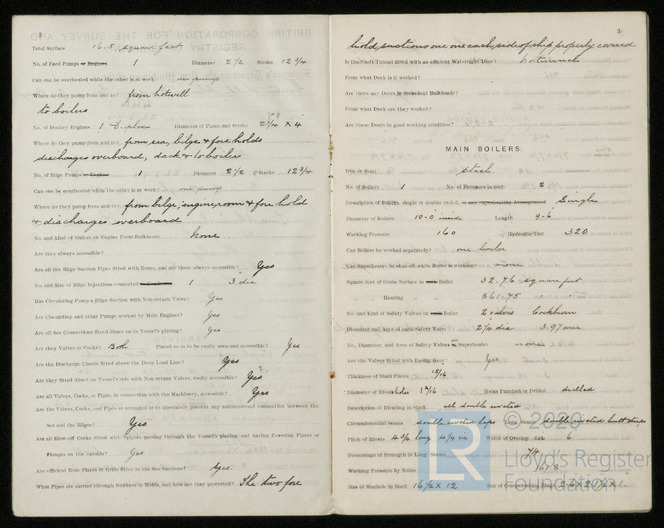 2
Total Surface 16.5 square feet
No. of Feed Pumps or Engines 1 Diameter 2 1/2 Stroke 12 3/4
Can one be overhauled while the other is at work? one pump
Where do they pump from and to? from hotwell
to boilers
No. of Donkey Engines 1 Duplex Diameter of Pump and Stroke 2 3/4 x 4
Where do they pump from and to? from sea, bilge & fore holds
discharges overboard, deck & to boilers
No. of Bilge Pumps 1 Diameter 2 1/2 Stroke 12 3/4
Can one be overhauled while the other is at work? one pump
Where do they pump from and to? from bilge, engine room & fore hold
& discharges overboard
No. and kind of Sluices on Engine Room Bulkheads none
Are they always accessible?
Are all the Bilge Suction Pipes fitted with Roses, and are these always accessible? Yes
No. and Size of Bilge Injections 1 3 dia
Has Circulating Pump a Bilge Suction with Non-return Valve? Yes
Are Circulating and other Pumps worked by Main Engines? Yes
Are all Sea Connections fitted direct on to Vessel's plating? Yes
Are they Valves or Cocks? Both Placed so as to be easily seen and accessible? Yes
Are the Discharge Chests fitted above the Deep Load Line? Yes
Are they fitted direct on Vessel's side with Non-return Valves, easily accessible? Yes
Are all Valves, Cocks, or Pipes, in connection with the Machinery, accessible? Yes
Are the Valves, Cocks, and Pipes so arranged as to absolutely prevent any unintentional connection between the
Sea and the Bilges? Yes
Are all Blow-off Cocks fitted with Spigots passing through the Vessel's plating, and having Covering Plates or
Flanges on the outside? Yes
Are efficient Rose Plates or Grids fitted to the Sea Suctions? Yes.
What Pipes are carried through Bunkers or Holds, and how are they protected? The two fore
3
hold suctions one on each side of ship properly covered
Is the Shaft Tunnel fitted with an efficient Watertight Door? no tunnel
From what Deck is it worked?
Are there any Doors in Bulkheads?
From what Deck are they worked?
Are these Doors in good working condition?
MAIN BOILERS.
Iron or Steel steel
No. of Boilers 1 No. of Furnaces in each 2
Description of Boilers, single or double ended, Single
Diameter of Boilers 10-0 inside Length 9-6
Working Pressure 160 Hydraulic Test 320
Can Boilers be worked separately? one boiler
Can Superheater be shut off while Boiler is working? none
Square feet of Grate Surface in Boiler 32.76 square feet
Heating 561.75
No. and kind of Safety Valves on Boiler 2 valves Cockburn
Diameter and Area of each Safety Valve 2 1/4 dia 3.97 area
No., Diameter, and Area of Safety Valves on Superheater none
Are the Valves fitted with Easing Gear? Yes
Thickness of Shell Plates 15/16
Diameter of Rivet holes Holes Punched or Drilled drilled
Description of Riveting in Shell all double riveted
Circumferential Seams double riveted laps double riveted butt straps
Pitch of Rivets Width of Overlap 6
Percentage of Strength of Long. Seams 74
Working Pressure by Rules 161.3
Size of Manhole in Shell 16 1/2 x 12
© 2020
LR
Lloyd's Register
Foundation